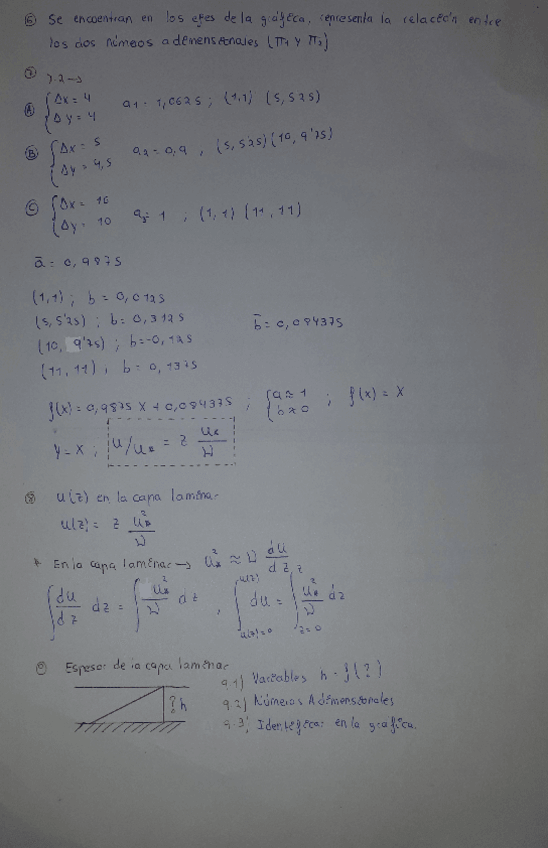 ⑥ Se encuentran en los ejes de la gráfica, representa la relación entre
los dos números adimensionales (π₁ y π₂)
⑦ 7.2→
Ⓐ { Δx = 4 a₁ = 1,0625 ; (1,1) (5, 5'25)
Δy = 4
Ⓑ { Δx = 5 a₂ = 0,9 , (5, 5'25) (10, 9'75)
Δy = 4,5
Ⓒ { Δx = 10 a₃ = 1 ; (1,1) (11, 11)
Δy = 10
ā = 0,9875
(1,1) ; b = 0,0125
(5, 5'25) ; b = 0,3125 b̄ = 0,084375
(10, 9'75) ; b = -0,125
(11, 11) , b = 0,1375
f(x) = 0,9875 X + 0,084375 ; { a ≈ 1 ; f(x) = X
b ≈ 0
y = X ; u/u* = z u*/ν
⑧ u(z) en la capa laminar
u(z) = z u*²/ν
* En la capa laminar → u*² ≈ ν du/dz
∫ du/dz dz = ∫ u*²/ν dz , ∫_{u(z)=0}^{u(z)} du = ∫_{z=0}^{z} u*²/ν dz
⑨ Espesor de la capa laminar
9.1) Variables h = f(?)
?h 9.2) Números Adimensionales
9.3) Identificar en la grafica.